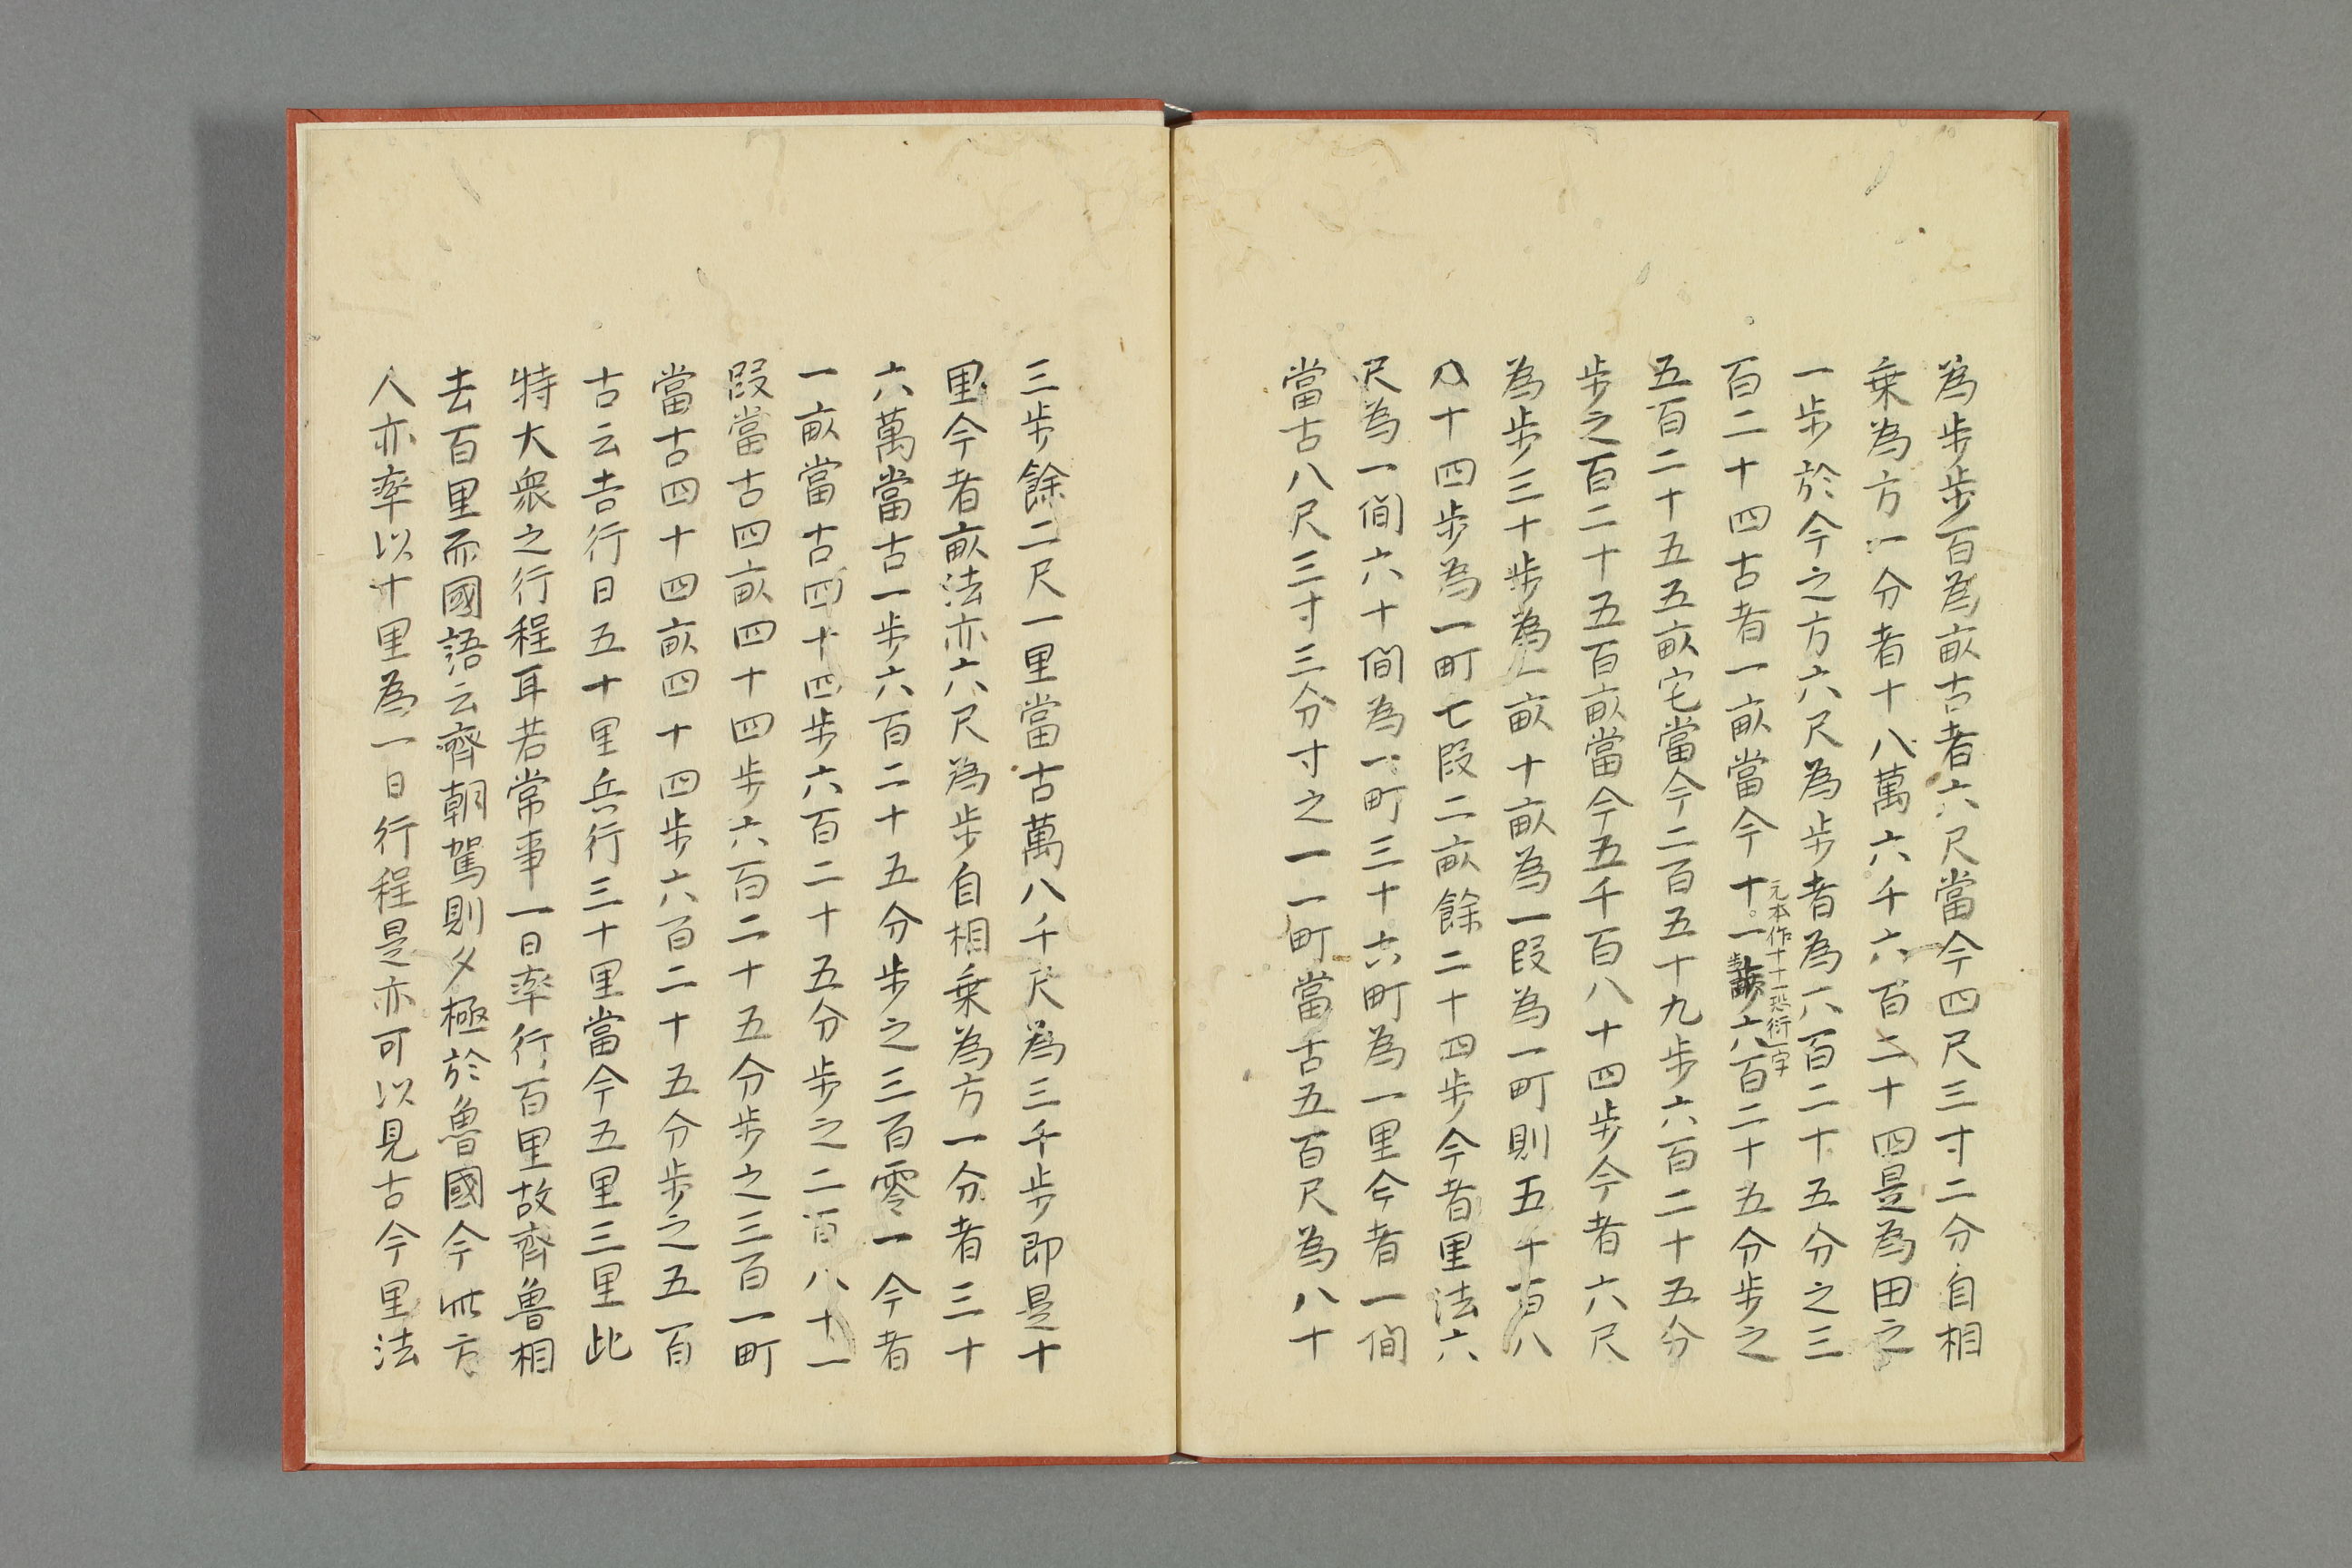 為步步百為畝古者六尺當今四尺三寸二分自相
乗為方一分者十八萬六千六百二十四是為田之
一步於今之方六尺為步者為六百二十五分之三
元本作十十一恐衍一字
百二十四古者一畝當今十一步六百二十五分步之
五百二十五五畝宅當今二百五十九步六百二十五分
步之百二十五百畝當今五千百八十四步今者六尺
為步三十步為一畝十畝為一段為一町則五千百八
八十四步為一町七段二畝餘二十四步今者里法六
尺為一間六十間為一町三十六町為一里今者一間
當古八尺三寸三分寸之一一町當古五百尺為八十
三步餘二尺一里當古萬八千尺為三千步即是十
里今者畝法亦六尺為步自相乗為方一分者三十
六萬當古一步六百二十五分步之三百零一今者
一畝當古四十四步六百二十五分步之二百八十一一
段當古四畝四十四步六百二十五分步之三百一町
當古四十四畝四十四步六百二十五分步之五百
古云吉行日五十里兵行三十里當今五里三里此
特大衆之行程耳若常事一日率行百里故齊魯相
去百里而國語云齊朝駕則夕極於魯國今此方
人亦率以十里為一日行程是亦可以見古今里法